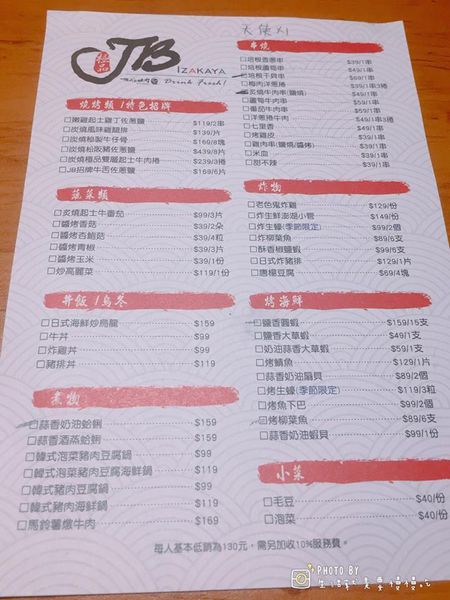 天使X1
極品
JB
IZAKAYA
Drink Fresh!
燒烤類 / 特色招牌
□嫩雞起士雞丁佐蔥鹽 $119/2串
□炭燒風味雞腿排 $139/片
□炭燒極製牛仔骨 $169/8塊
□炭燒松阪豬佐蔥鹽 $439/8片
□炭燒極品雙層起士牛肉捲 $239/3捲
□JB招牌牛舌佐蔥鹽 $169/6片
蔬菜類
□炭燒起士牛番茄 $99/3片
□醬烤香菇 $39/2朵
□醬烤杏鮑菇 $39/4粒
□醬烤青椒 $39/3片
□醬烤玉米 $39/1份
□炒高麗菜 $119/1份
丼飯 / 烏冬
□日式海鮮炒烏龍 $159
□牛丼 $99
□炸雞丼 $99
□豬排丼 $119
煮物
□蒜香奶油蛤蜊 $159
□蒜香酒蒸蛤蜊 $159
□韓式泡菜豬肉豆腐鍋 $119
□韓式泡菜豬肉豆腐海鮮鍋 $119
□韓式豬肉豆腐鍋 $99
□韓式豬肉海鮮鍋 $119
□馬鈴薯燉牛肉 $169
串燒
□培根香蔥串 $39/1串
□培根蘆筍串 $49/1串
□培根干貝串 $49/1串
□梅肉洋蔥捲 $39/3捲
□炙燒牛肉串(鹽燒) $49/1串
□蘆筍牛肉串 $49/1串
□番茄牛肉串 $49/1串
□洋蔥捲牛肉 $49/1串
□七里香 $39/1串
□烤雞皮 $39/1串
□雞肉串(鹽燒/醬烤) $39/1串
□米血 $39/1串
□甜不辣 $39/1串
炸物
□老色鬼炸雞 $129/份
□炸生鮮澎湖小管 $149/份
□炸生蠔(季節限定) $99/2個
□炸柳葉魚 $89/6支
□酥香椒鹽蝦 $99/6支
□日式炸豬排 $129/1片
□唐楊豆腐 $69/4塊
烤海鮮
□鹽香圓蝦 $159/15支
□鹽香大草蝦 $49/1支
□奶油蒜香大草蝦 $49/1支
□烤鯖魚 $129/1片
□蒜香奶油扇貝 $89/2個
□烤生蠔(季節限定) $119/3粒
□烤魚下巴 $99/2個
□烤柳葉魚 $89/6支
□蒜香奶油蝦貝 $99/1份
小菜
□毛豆 $40/份
□泡菜 $40/份
每人基本低銷為130元，需另加收10%服務費。
PHOTO BY